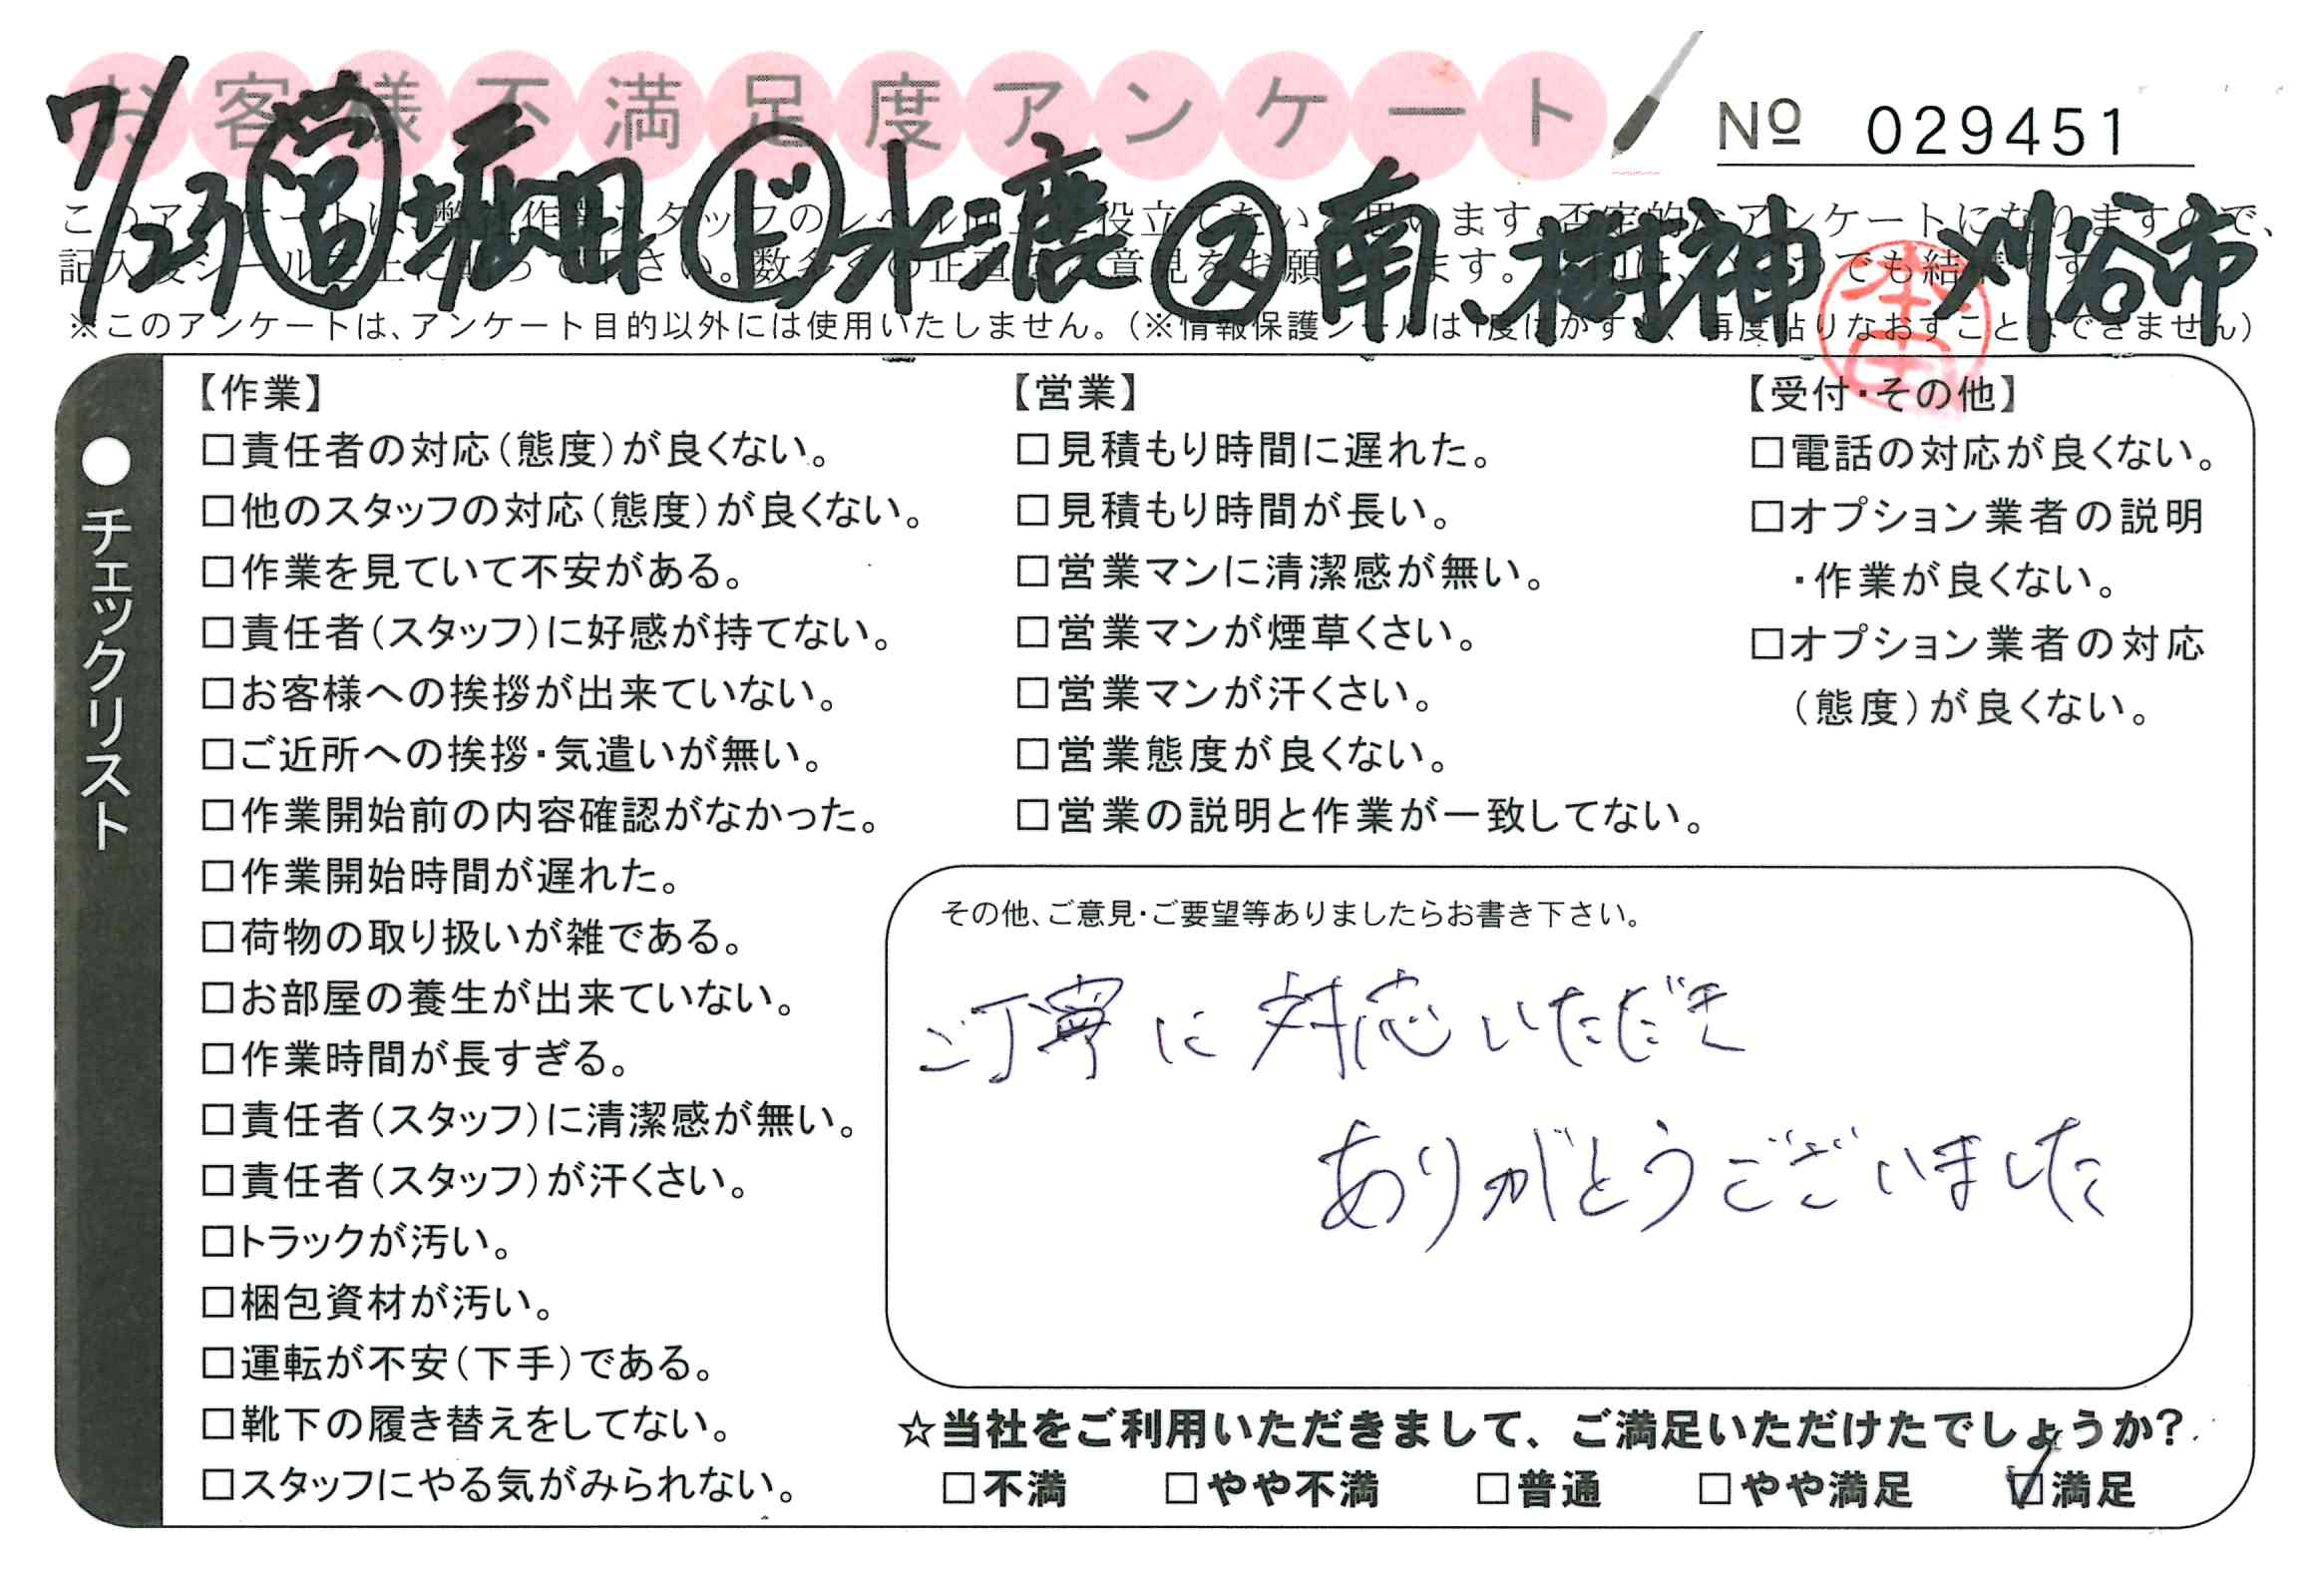 お客様不満足度アンケート
№ 029451
7/23 営 堀田 ド 水漉 ス 南、樹神 刈谷市
※このアンケートは、アンケート目的以外には使用いたしません。
チェックリスト
【作業】
□責任者の対応(態度)が良くない。
□他のスタッフの対応(態度)が良くない。
□作業を見ていて不安がある。
□責任者(スタッフ)に好感が持てない。
□お客様への挨拶が出来ていない。
□ご近所への挨拶・気遣いが無い。
□作業開始前の内容確認がなかった。
□作業開始時間が遅れた。
□荷物の取り扱いが雑である。
□お部屋の養生が出来ていない。
□作業時間が長すぎる。
□責任者(スタッフ)に清潔感が無い。
□責任者(スタッフ)が汗くさい。
□トラックが汚い。
□梱包資材が汚い。
□運転が不安(下手)である。
□靴下の履き替えをしてない。
□スタッフにやる気がみられない。
【営業】
□見積もり時間に遅れた。
□見積もり時間が長い。
□営業マンに清潔感が無い。
□営業マンが煙草くさい。
□営業マンが汗くさい。
□営業態度が良くない。
□営業の説明と作業が一致してない。
【受付・その他】
□電話の対応が良くない。
□オプション業者の説明
・作業が良くない。
□オプション業者の対応
(態度)が良くない。
その他、ご意見・ご要望等ありましたらお書き下さい。
ご丁寧に対応いただき
ありがとうございました
☆当社をご利用いただきまして、ご満足いただけたでしょうか?
□不満 □やや不満 □普通 □やや満足 ☑満足